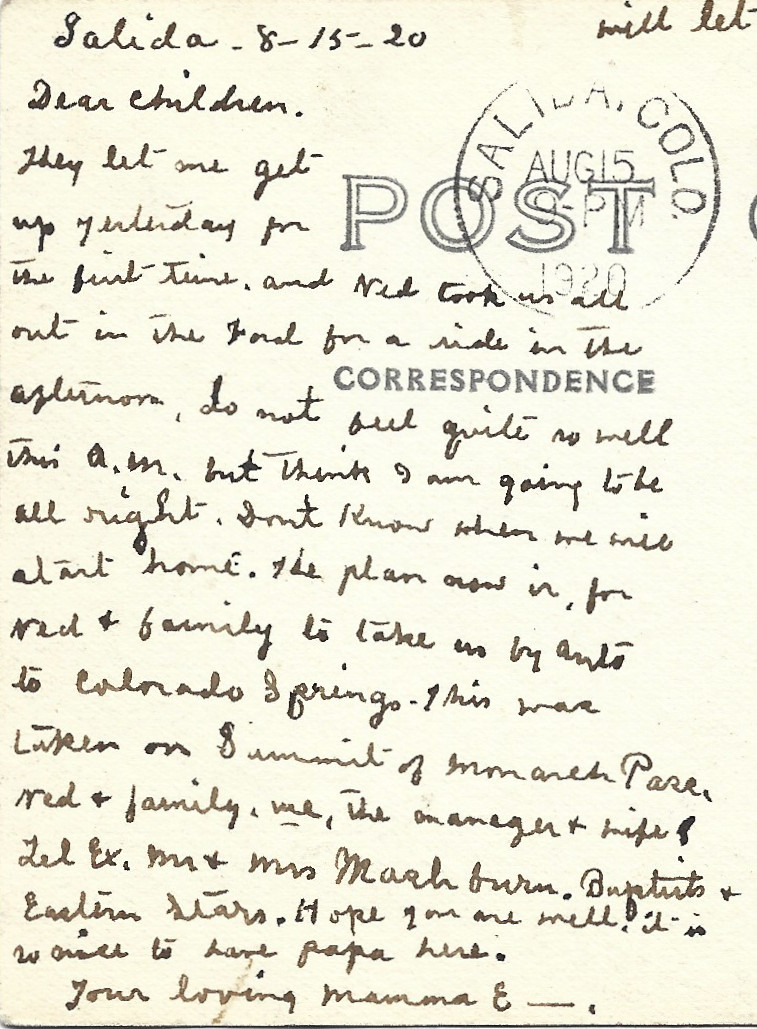 will let
Salida - 8-15-20
Dear Children.
SALIDA, COLO.
AUG 15
9-PM
1920
POST
CORRESPONDENCE
They let me get
up yesterday for
the first time. and Ned took us all
out in the Ford for a ride in the
afternoon, do not feel quite so well
this A.M. but think I am going to be
all right. Dont Know when we will
start home. The plan now is, for
Ned & family to take us by auto
to Colorado Springs. This was
taken on Summit of Monarch Pass.
Ned & family, me, the manager & wife
Tel Ex. Mr & Mrs Mashburn. Baptists &
Eastern Stars. Hope you are well. it is
so nice to have papa here.
Your loving Mamma E —.